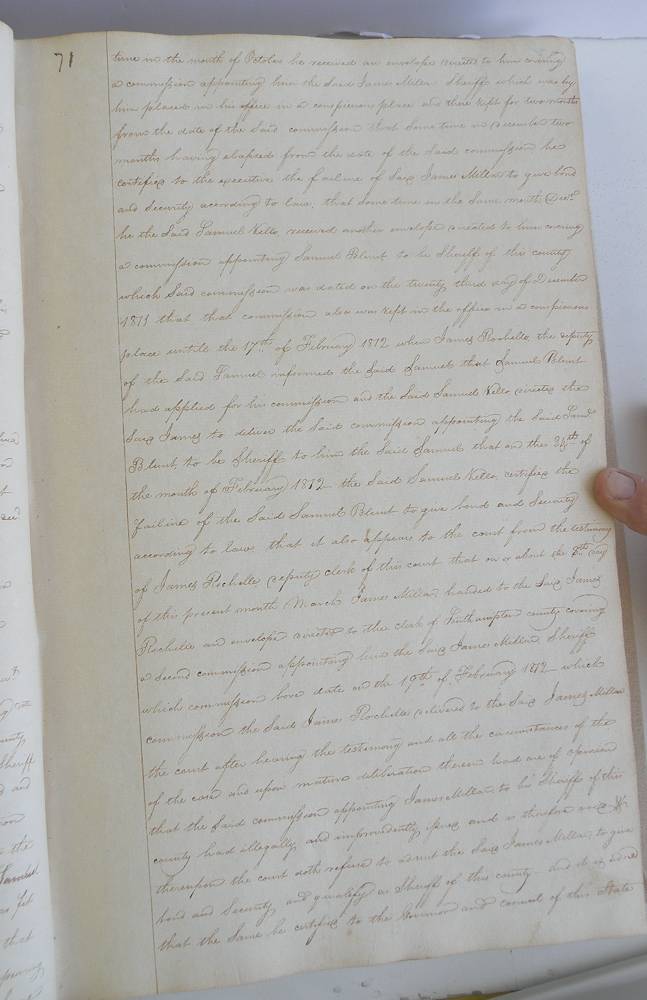 71
time in the month of October he received an envelope directed to him covering
a commission appointing him the said James Miller Sheriff which was by
him placed in his office in a conspicuous place and there kept for two months
from the date of the said commission that some time in December two
months having elapsed from the date of the said commission he
certified to the executive the failure of said James Miller to give bond
and security according to law, that some time in the same month Decr.
he the said Samuel Kello received another envelope directed to him covering
a commission appointing Samuel Blunt to be Sheriff of this county
which said commission was dated on the twenty third day of December
1811 that that commission also was kept in the office in a conspicuous
place untill the 17th of February 1812 when James Rochelle, the deputy
of the said Samuel informed the said Samuel that Samuel Blunt
had applied for his commission and the said Samuel Kello directed the
said James to deliver the said commission appointing the said Saml.
Blunt, to be Sheriff to him the said Samuel that on the of
the month of February 1812 the said Samuel Kello, certified the
failure of the said Samuel Blunt to give bond and security
according to law that it also appears to the court from the testimony
of James Rochelle deputy clerk of this court that on or about the day
of this present month March James Miller, handed to the said James
Rochelle an envelope directed to the clerk of Southampton county covering
a second commission appointing him the said James Miller Sheriff
which commission bore date on the 19th of February 1812 which
commission the said James Rochelle delivered to the said James Miller
the court after hearing the testimony and all the circumstances of the
of the case and upon mature deliberation thereon had are of opinion
that the said commission appointing James Miller to be Sheriff of this
county had illegally and improvidently and is therefore void &
thereupon the court doth refuse to admit the said James Miller, to give
bond and security and qualify as Sheriff of this county and it is
that the same be certified to the Governor and council of this State